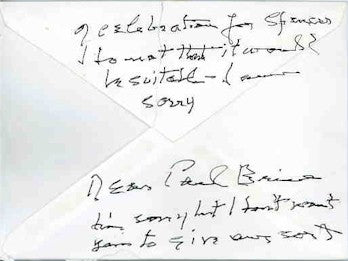 of celebration for Spencer
I do not think it would
be suitable - I am
sorry
Dear Paul
I'm sorry but I don't want
you to give any sort